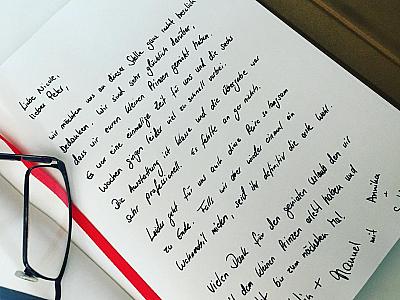 Liebe Nicole,
lieber Peter,
wir möchten uns an dieser Stelle ganz recht herzlich
bedanken. Wir sind sehr glücklich darüber,
dass wir euren kleinen Prinzen gemietet haben.
Es war eine einmalige Zeit für uns und die sechs
Wochen gingen leider viel zu schnell vorbei.
Die Ausstattung ist klasse und die Übergabe war
sehr professionell. Es fehlte an gar nichts.
Leider geht für uns auch diese Reise so langsam
zu Ende. Falls wir aber wieder einmal ein
Wohnmobil mieten, seid ihr definitiv die erste Wahl.
Vielen Dank für den genialen Urlaub den wir
den kleinen Prinzen erlebt haben und
bis zum nächsten Mal.
+ Manuel mit Annika
+